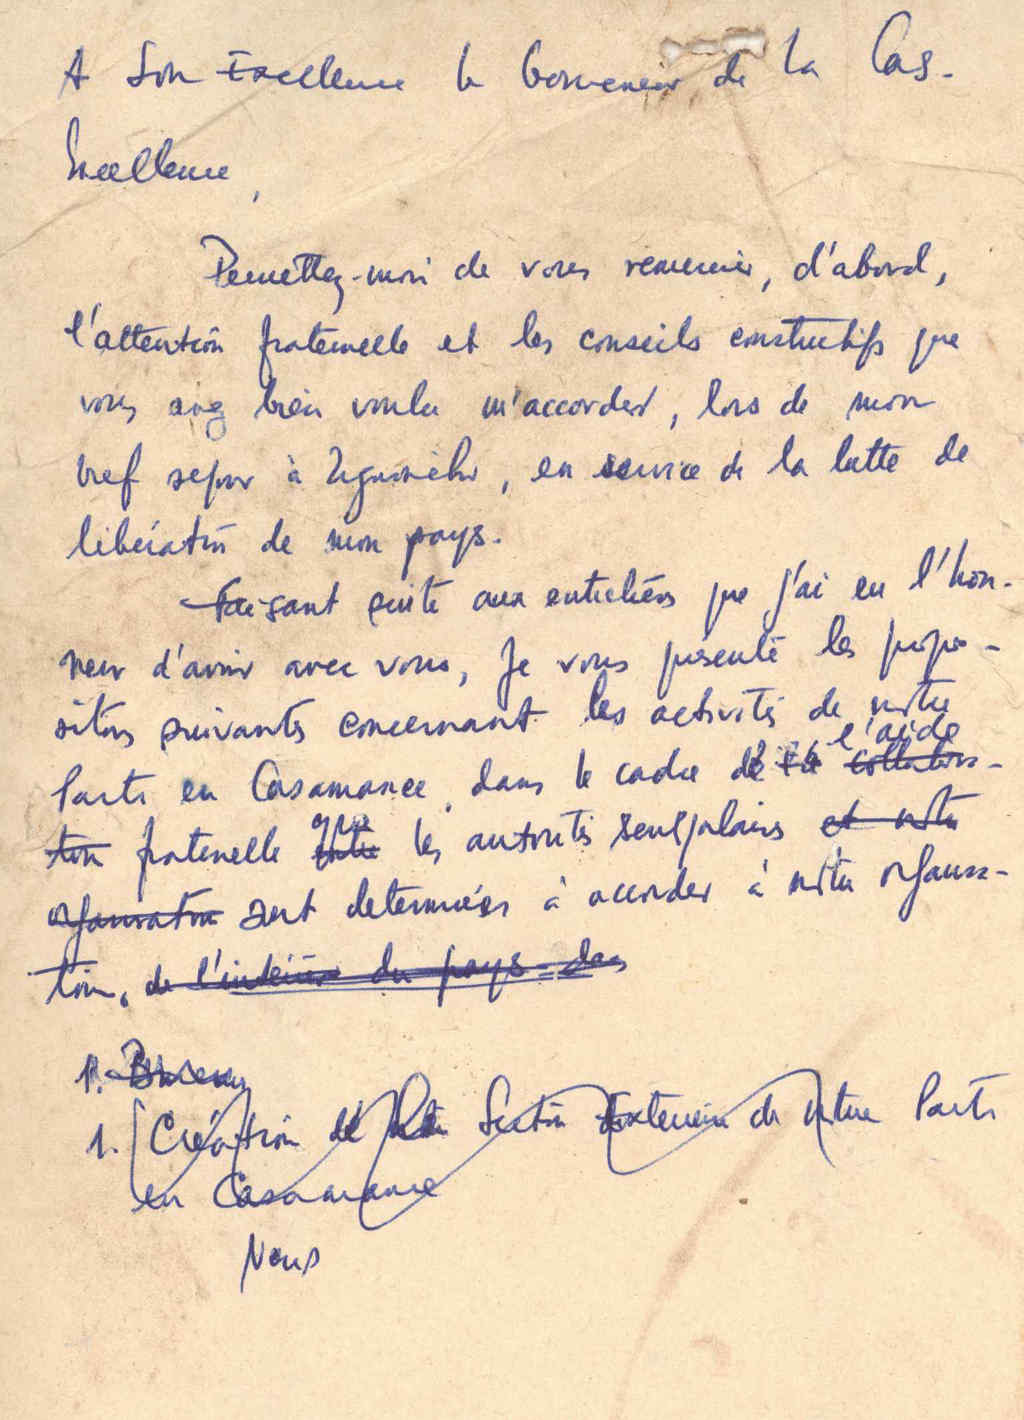 A Son Excellence le Gouverneur de la Cas-
Excellence,
Permettez-moi de vous remercier, d'abord,
l'attention fraternelle et les conseils constructifs que
vous avez bien voulu m'accorder, lors de mon
bref séjour à Ziguinchor, en service de la lutte de
libération de mon pays.
Faisant suite aux entretiens que j'ai eu l'hon-
neur d'avoir avec vous, je vous présente les propo-
sitions suivantes concernant les activités de notre
l'aide
Parti en Casamance, dans le cadre de la collabora-
que
tion fraternelle entre les autorités sénégalaises et notre
organisation sont déterminées à accorder à notre organisa-
tion, de l'intérieur du pays - dans
1. Bureau
1. Création de Section Extérieure de notre Parti
en Casamance
Nous